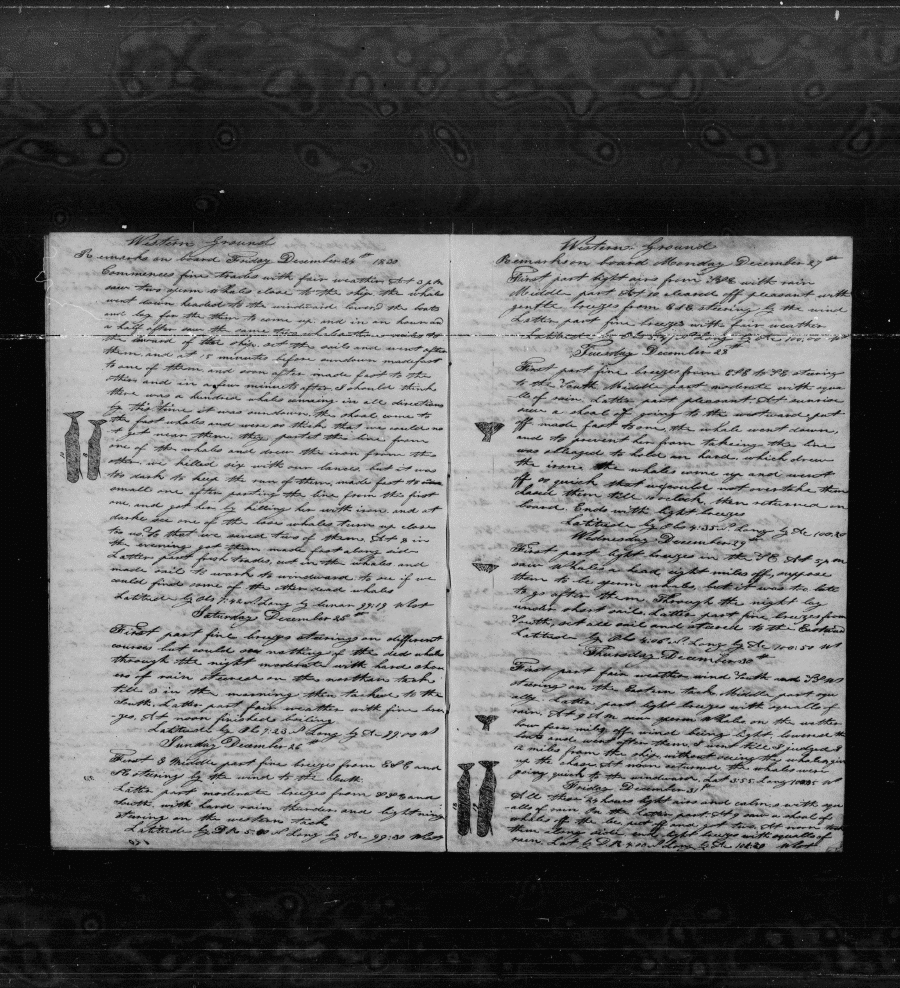 Western Ground
Remarks on board Friday December 24th 1830
Commences fine trades with fair weather At 3 pm
saw two sperm whales close to the ship the whales
went down headed to the windward lowed the boats
and lay for them to come up and in an hour and
a half after saw the same two whales two miles to
the leward of the ship set the sails and went after
them and at 15 minutes before sundown made fast
to one of them and soon after made fast to the
other and in a few minutes after I should think
there was a hundred whales coming in all directions
by this time it was sundown the shoal come to
the fast whales and were so thick that we could no
t get near them they parted the line from
one of the whales and drew the iron from the
other we killed six with our lances but it was
too dark to keep the run of them made fast to
small one after parting the line from this first
one and got her by kiling her with iron and at
dark see one of the lose whales turn up close
to us So that we saved two of them At 8 in
the evening got them made fast along side
Latter part fresh trades cut in the whales and
made sail to work to windward to see if we
could find some of the other dead whales
Latitude by Obs 7.22 S Long by lunar 99.19 West
Saturday December 25th
First part fine breezes steering on different
courses but could see nothing of the dead whales
through the night moderate with hard show
ers of rain steered on the northern tack
till 5 in the morning then tacked to the
South Latter part fair weather with fine bree
zes. At noon finished boiling
Latitude by Obs 7.23 S Long by Ac 99.00 W
Sunday December 26th
First & Middle part fine breezes from ESE and
SE stering by the wind to the South
Latter part moderate breezes from SSE and
South with hard rain thunder and lightning
Steering on the western tack
Latitude by D.R. S Long by Ac 99.30 West
Western Ground
Remarks on board Monday December 27th
First part light airs from SSE with rain
Middle part At 10 cleared off pleasant with
gentle breezes from ESE steering by the wind
Latter part fine breezes with fair weather
Latitude by S Long by Ac 100.00 W
Tuesday December 28th
First part fine breezes from ESE to SE steering
to the South Middle part moderate with squa
lls of rain. Latter part pleasant. At sunrise
saw a shoal of going to the westward, put
off made fast to one, the whale went down,
and to prevent him from takeing the line
was obleaged to hold on hard which drew
the iron the whales come up and went
off so quick that we could not overtake them
chased them till oclock then returned on
board. Ends with light breezes
Latitude by Obs 4.35 S Long by Ac 100.20
Wednesday December 29th
First part light breezes in the SE At 5 pm
saw Whales a head eight miles off, suppose
them to be sperm whales but it was too late
to go after them. Through the night lay
under short sail. Latter part fine breezes from
South, set all sail and steered to the Eastward
Latitude by Obs 4.06 S Long by Ac 100.50 W
Thursday December 30th
First part fair weather wind South and SSW
steering on the Eastern tack Middle part squ
ally. Latter part light breezes with squalls of
rain. At 9 A m saw sperm Whales on the wether
bow four miles off wind being light, lowered the
boats and went after them, I went till I judged I
a miles from the ship without seeing the whales gave
up the chase. At noon returned the whales were
going quick to the windward. Lat 3.55 Long W
Friday December 31st
All these 24 hours light airs and calms with squ
alls of rain. In the latter part At 9 saw a shoal of
whales off the lee put off and got two. At noon
them along side ends light breezes with squalls of
rain. Lat by D.R 4.00 S Long by Ac West